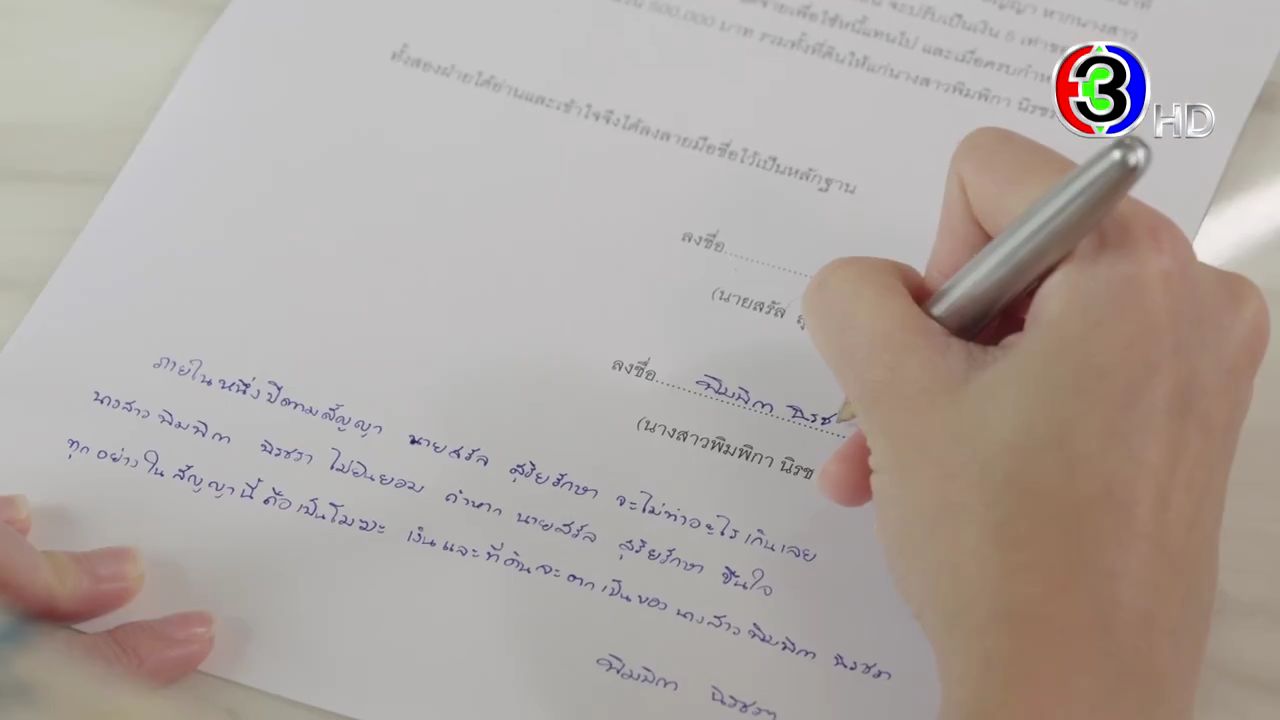 ญญา หากนางสาว
จะปรับเป็นเงิน 5 เท่าของ
จ่ายเพื่อใช้หนี้แทนไป และเมื่อครบกำห
500,000 บาท รวมทั้งที่ดินให้แก่นางสาวพิมพิกา นิรชร
ทั้งสองฝ่ายได้อ่านและเข้าใจจึงได้ลงลายมือชื่อไว้เป็นหลักฐาน
3 HD
ลงชื่อ
(นายสรัล
ลงชื่อ พิมพิกา นิรช
(นางสาวพิมพิกา นิรช
ภายในหนึ่งปีตามสัญญา นายสรัล สุริยรักษา จะไม่ทำอะไรเกินเลย
นางสาวพิมพิกา นิรชรา ไม่ยินยอม ถ้าหาก นายสรัล สุริยรักษา ขืนใจ
ทุกอย่างในสัญญานี้ถือเป็นโมฆะ เงินและที่ดินจะตกเป็นของ นางสาวพิมพิกา นิรชรา
พิมพิกา นิรชรา